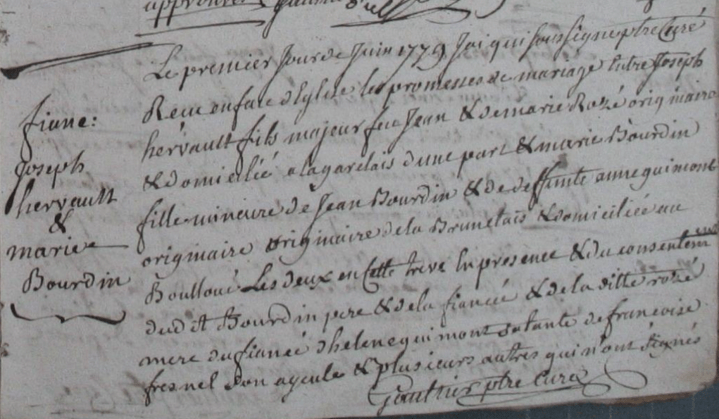 approuvés
Le premier Jour de Juin 1779 Jai qui soussigne ptre Curé
Recu enface deglise les promesses de mariage Entre Joseph
hervault fils majeur feu Jean & de marie Rozé originaire
& domicilié a la gardais dune part & marie Bourdin
fille mineure de Jean Bourdin & de deffunte anne guimont
originaire originaire de la Brunelais & domiciliée au
Boulloué Les deux en cette treve En presence & du consentem
dudit Bourdin pere & de la fiancée & de la ditte rozé
mere du fiancé dhelene guimont sa tante de francoise
fresnel son ayeule & plusieurs autres qui n'ont signés
Gaultier ptre Curé
fianc:
Joseph
hervault
&
marie
Bourdin